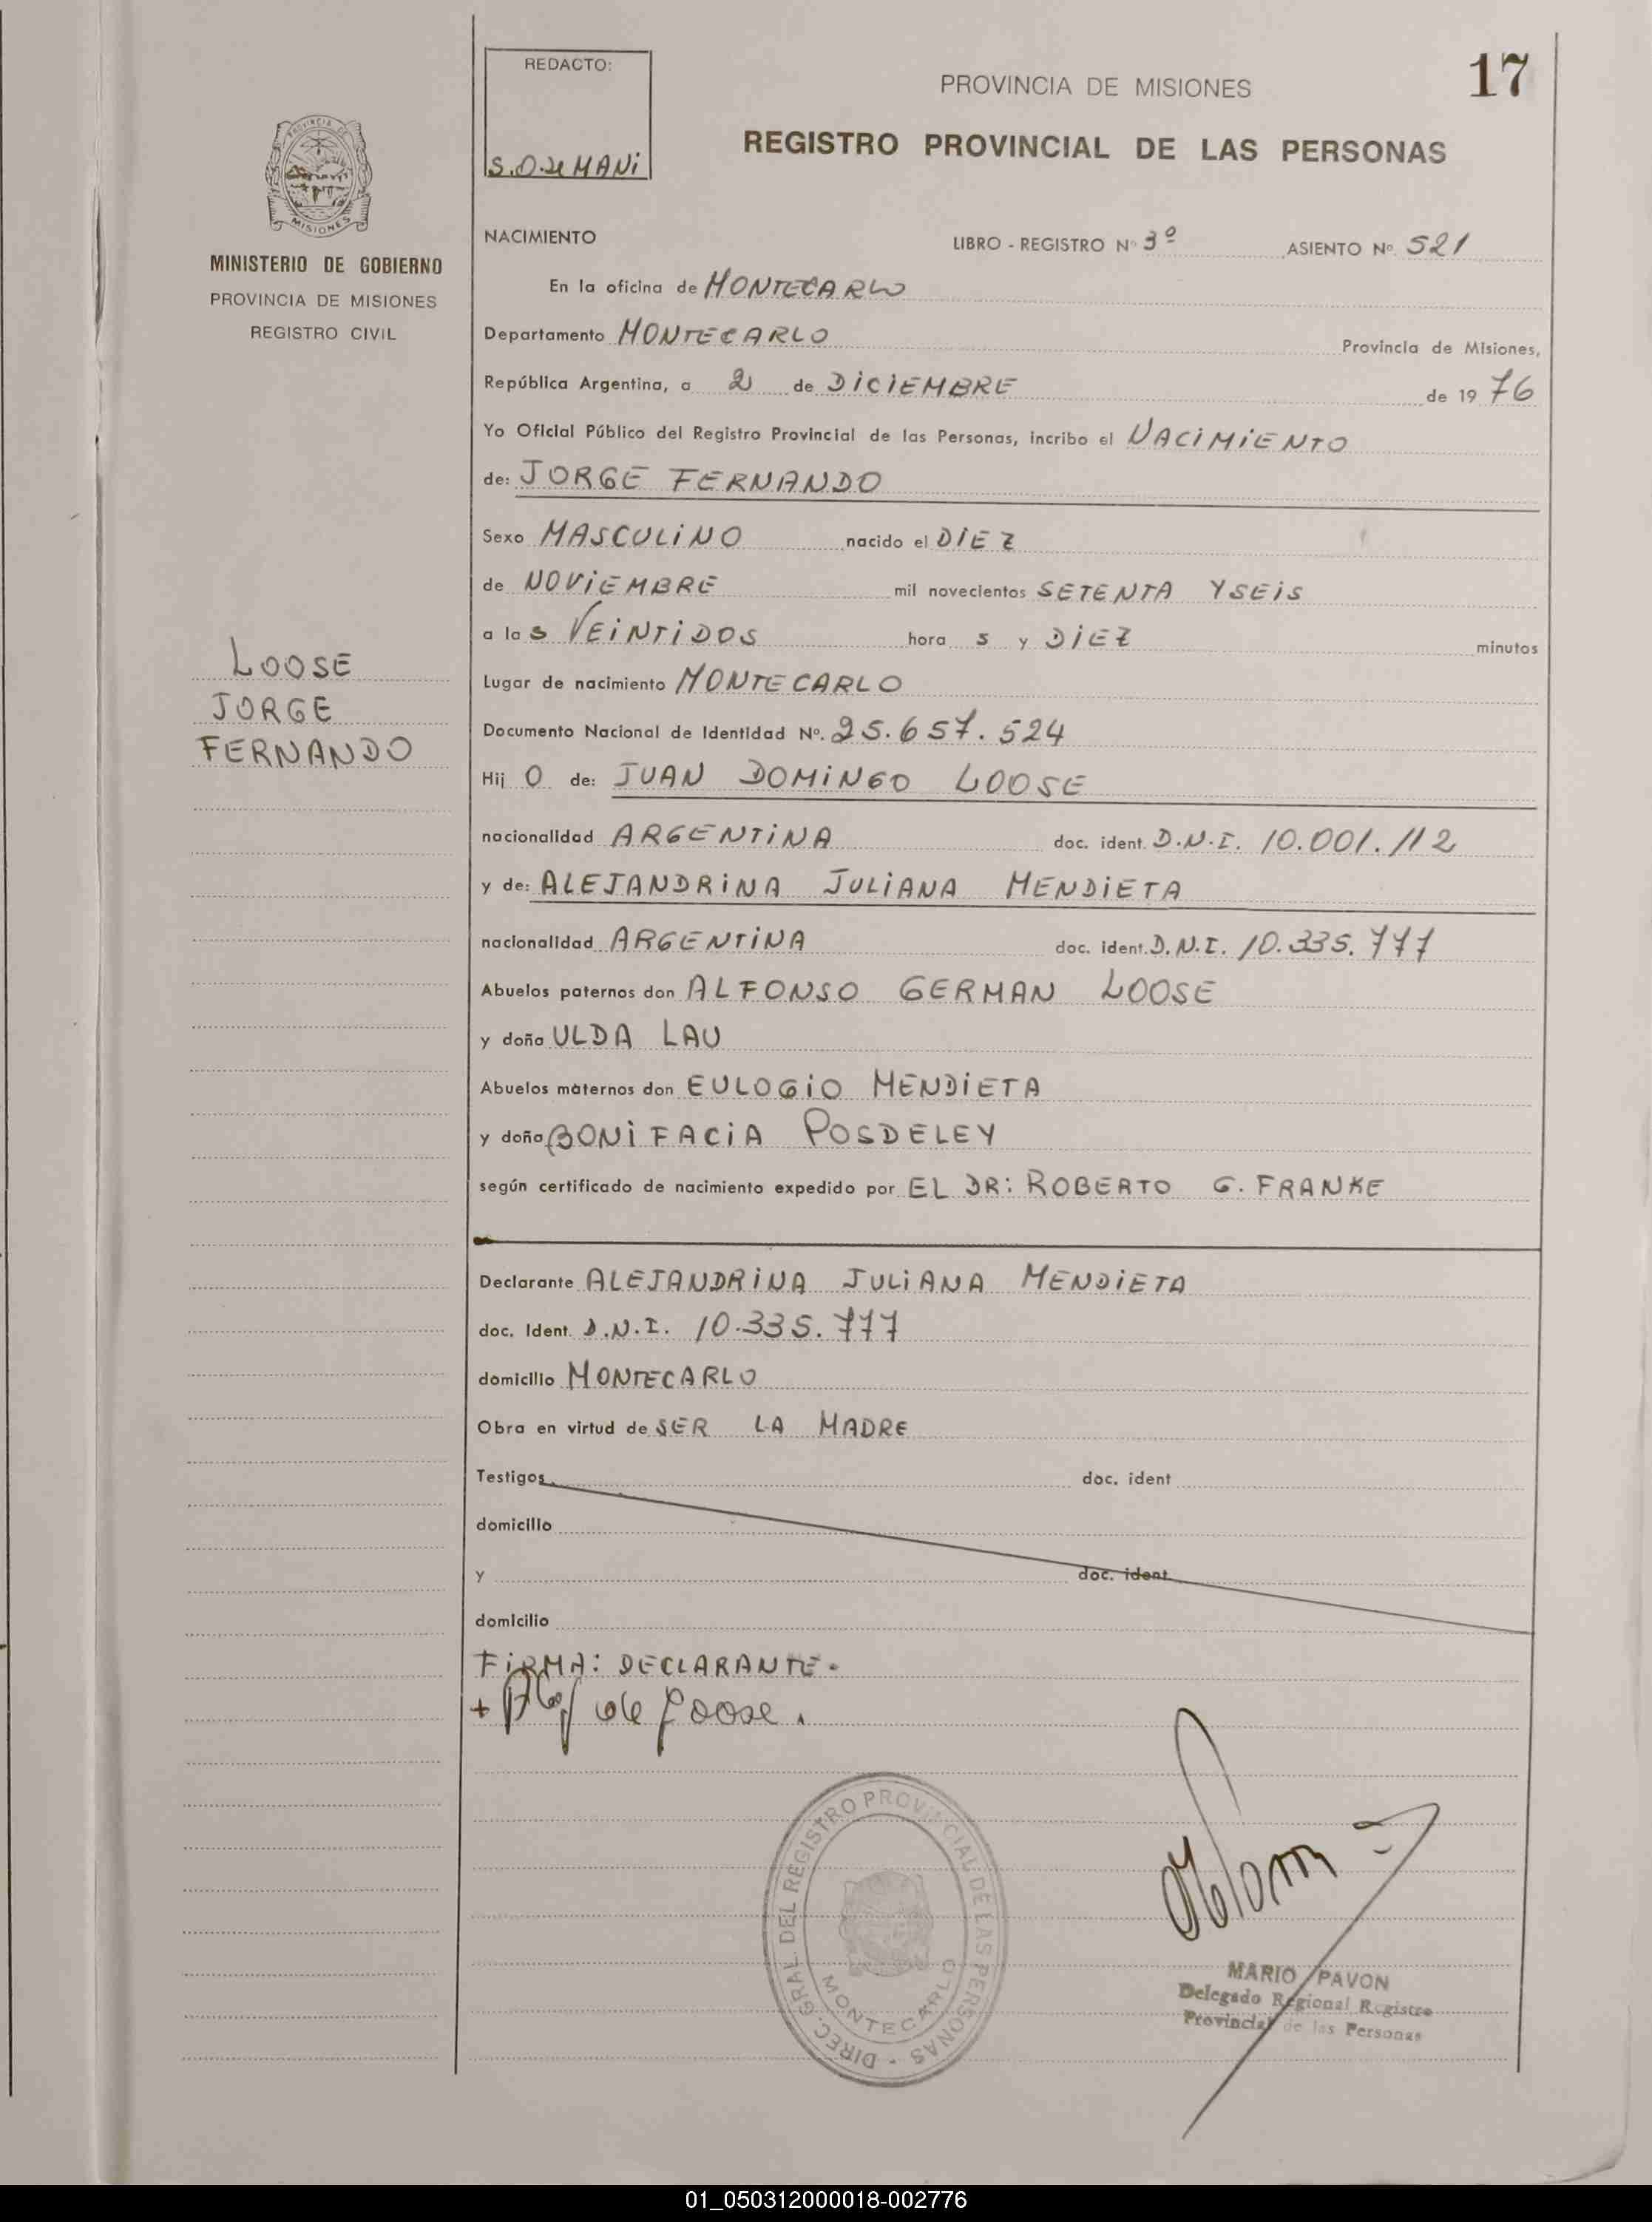 REDACTO:
PROVINCIA DE MISIONES
17
REGISTRO PROVINCIAL DE LAS PERSONAS
PROVINCIA DE
MISIONES
MINISTERIO DE GOBIERNO
PROVINCIA DE MISIONES
REGISTRO CIVIL
NACIMIENTO LIBRO - REGISTRO Nº 3º ASIENTO Nº 521
En la oficina de MONTECARLO
Departamento MONTECARLO Provincia de Misiones,
República Argentina, a 2 de DICIEMBRE de 19 76
Yo Oficial Público del Registro Provincial de las Personas, incribo el NACIMIENTO
de: JORGE FERNANDO
Sexo MASCULINO nacido el DIEZ
de NOVIEMBRE mil novecientos SETENTA Y SEIS
a las VEINTIDOS hora s y DIEZ minutos
LOOSE
JORGE
FERNANDO
Lugar de nacimiento MONTECARLO
Documento Nacional de Identidad Nº. 25.657.524
Hij O de: JUAN DOMINGO LOOSE
nacionalidad ARGENTINA doc. ident. D.N.I. 10.001.112
y de: ALEJANDRINA JULIANA MENDIETA
nacionalidad ARGENTINA doc. ident. D.N.I. 10.335.777
Abuelos paternos don ALFONSO GERMAN LOOSE
y doña ULDA LAU
Abuelos maternos don EULOGIO MENDIETA
y doña BONIFACIA POSDELEY
según certificado de nacimiento expedido por EL DR: ROBERTO G. FRANKE
Declarante ALEJANDRINA JULIANA MENDIETA
doc. Ident. D.N.I. 10.335.777
domicilio MONTECARLO
Obra en virtud de SER LA MADRE
Testigos doc. ident
domicilio
y doc. ident
domicilio
FIRMA: DECLARANTE.
+ de Loose.
DIREC. GRAL. DEL REGISTRO PROVINCIAL DE LAS PERSONAS -
MONTECARLO
MARIO PAVON
Delegado Regional Registro
Provincial de las Personas
01_050312000018-002776